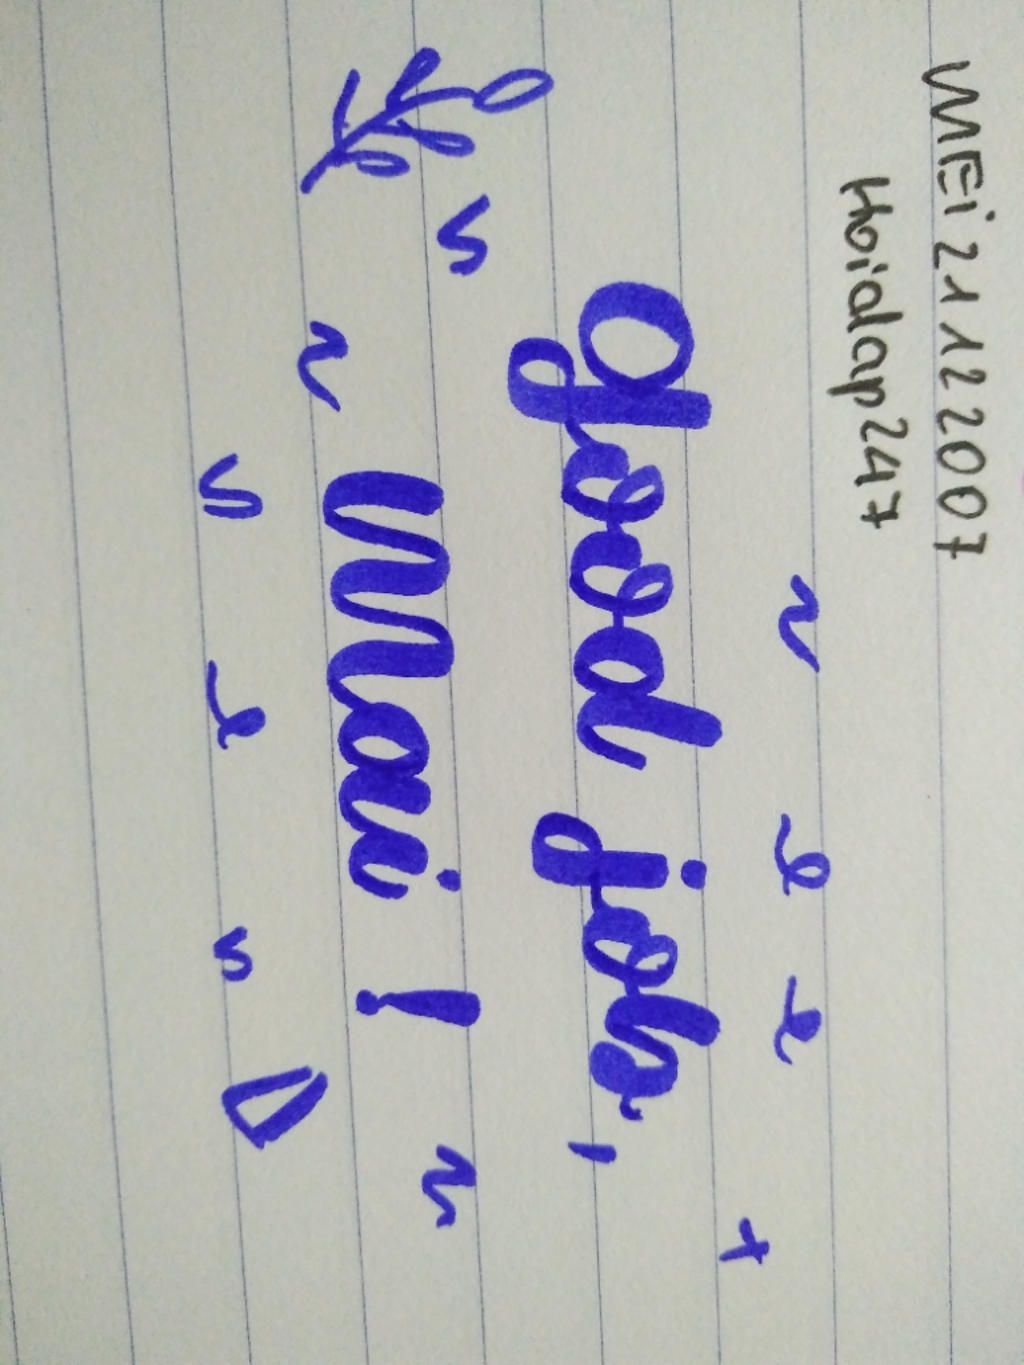 MEi21122007
Hoidap247
Good job,
Mai!